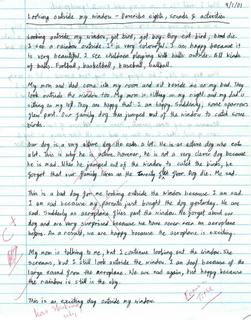 9/1/01
Looking outside my window - Describe sights, sounds & activities
Looking outside my window, get bird, get boy, boy eat bird, bird die.
I see a rainbow outside. It is very colourful. I am happy because it
is very beautiful. I see children playing with balls outside. All kinds
of balls. Football, basketball, baseball, balleat.
My mom and dad come into my room and sit beside me on my bed. They
look outside the window too. My mom is sitting on my right and my dad is
sitting on my left. They are happy that I am happy. Suddenly, some sparrows
flew past. Our family dog then jumped out of the window to catch some
birds.
Our dog is a very active dog. He eats a lot. He is an active dog who eats
alot. This is why he is active. However, he is not a very clever dog because
he is mad. When he jumped out of the window to catch the birds, he
forgot that our family lives on the twenty first floor. Dog die. Me sad.
This is a bad day for me looking outside the window because I am sad.
I am sad because my parents just bought the dog yesterday. We are
sad. Suddenly an aeroplane flies past the window. We forget about our
dog and are very surprised because we have never seen an aeroplane
before. As a result, we are happy because the aeroplane is exciting.
My mom is talking to me, but I continue looking out the window. She
screams, but I still look outside the window. I am deaf because of the
large sound from the aeroplane. We are sad again, but happy because
the rainbow is still in the sky.
This is an exciting day outside my window.